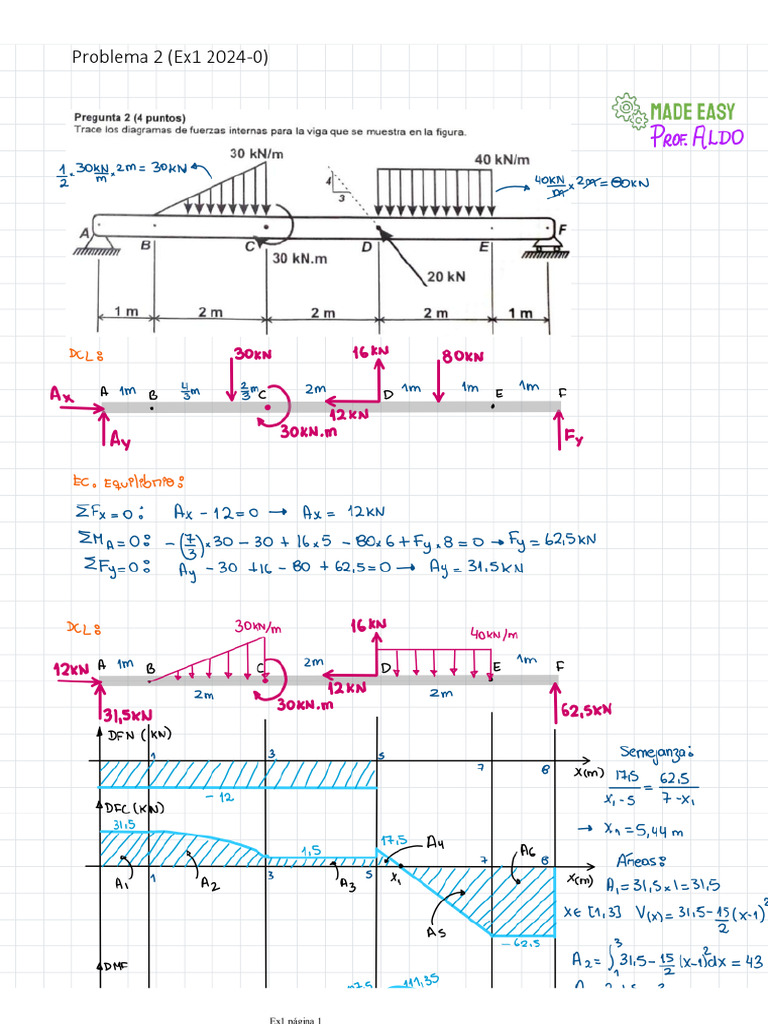 Problema 2 (Ex1 2024-0)
MADE EASY
PROF. ALDO
Pregunta 2 (4 puntos)
Trace los diagramas de fuerzas internas para la viga que se muestra en la figura.
30 kN/m
40 kN/m
1/2 × 30 kN/m × 2m = 30 kN
40 kN/m × 2m = 80 kN
4
3
A
B
C
D
E
F
30 kN.m
20 kN
1 m
2 m
2 m
2 m
1 m
DCL:
30 KN
16 KN
80 KN
A 1m B 4/3 m 2/3 m C 2m D 1m 1m E 1m F
Ax
12 KN
Ay
30 KN.m
Fy
EC. Equilibrio:
ΣFx = 0: Ax - 12 = 0 → Ax = 12 KN
ΣMA = 0: -(7/3) × 30 - 30 + 16 × 5 - 80 × 6 + Fy × 8 = 0 → Fy = 62,5 KN
ΣFy = 0: Ay - 30 + 16 - 80 + 62,5 = 0 → Ay = 31.5 KN
DCL:
30 KN/m
16 KN
40 KN/m
12 KN
A 1m B C 2m D E 1m F
2m
12 KN
2m
31,5 KN
30 KN.m
62,5 KN
DFN (KN)
1
3
5
7
8
X(m)
-12
DFC (KN)
31,5
1,5
17,5
A4
A6
7
8
A1
1
A2
3
A3
5
X1
X(m)
A5
-62.5
DMF
111,35
Semejanza:
17,5/(X1 - 5) = 62.5/(7 - X1)
→ X1 = 5,44 m
Áreas:
A1 = 31,5 × 1 = 31,5
X ∈ [1,3] V(x) = 31,5 - 15/2 (x-1)²
A2 = ∫₁³ 31,5 - 15/2 (x-1)² dx = 43
Ex1 página 1